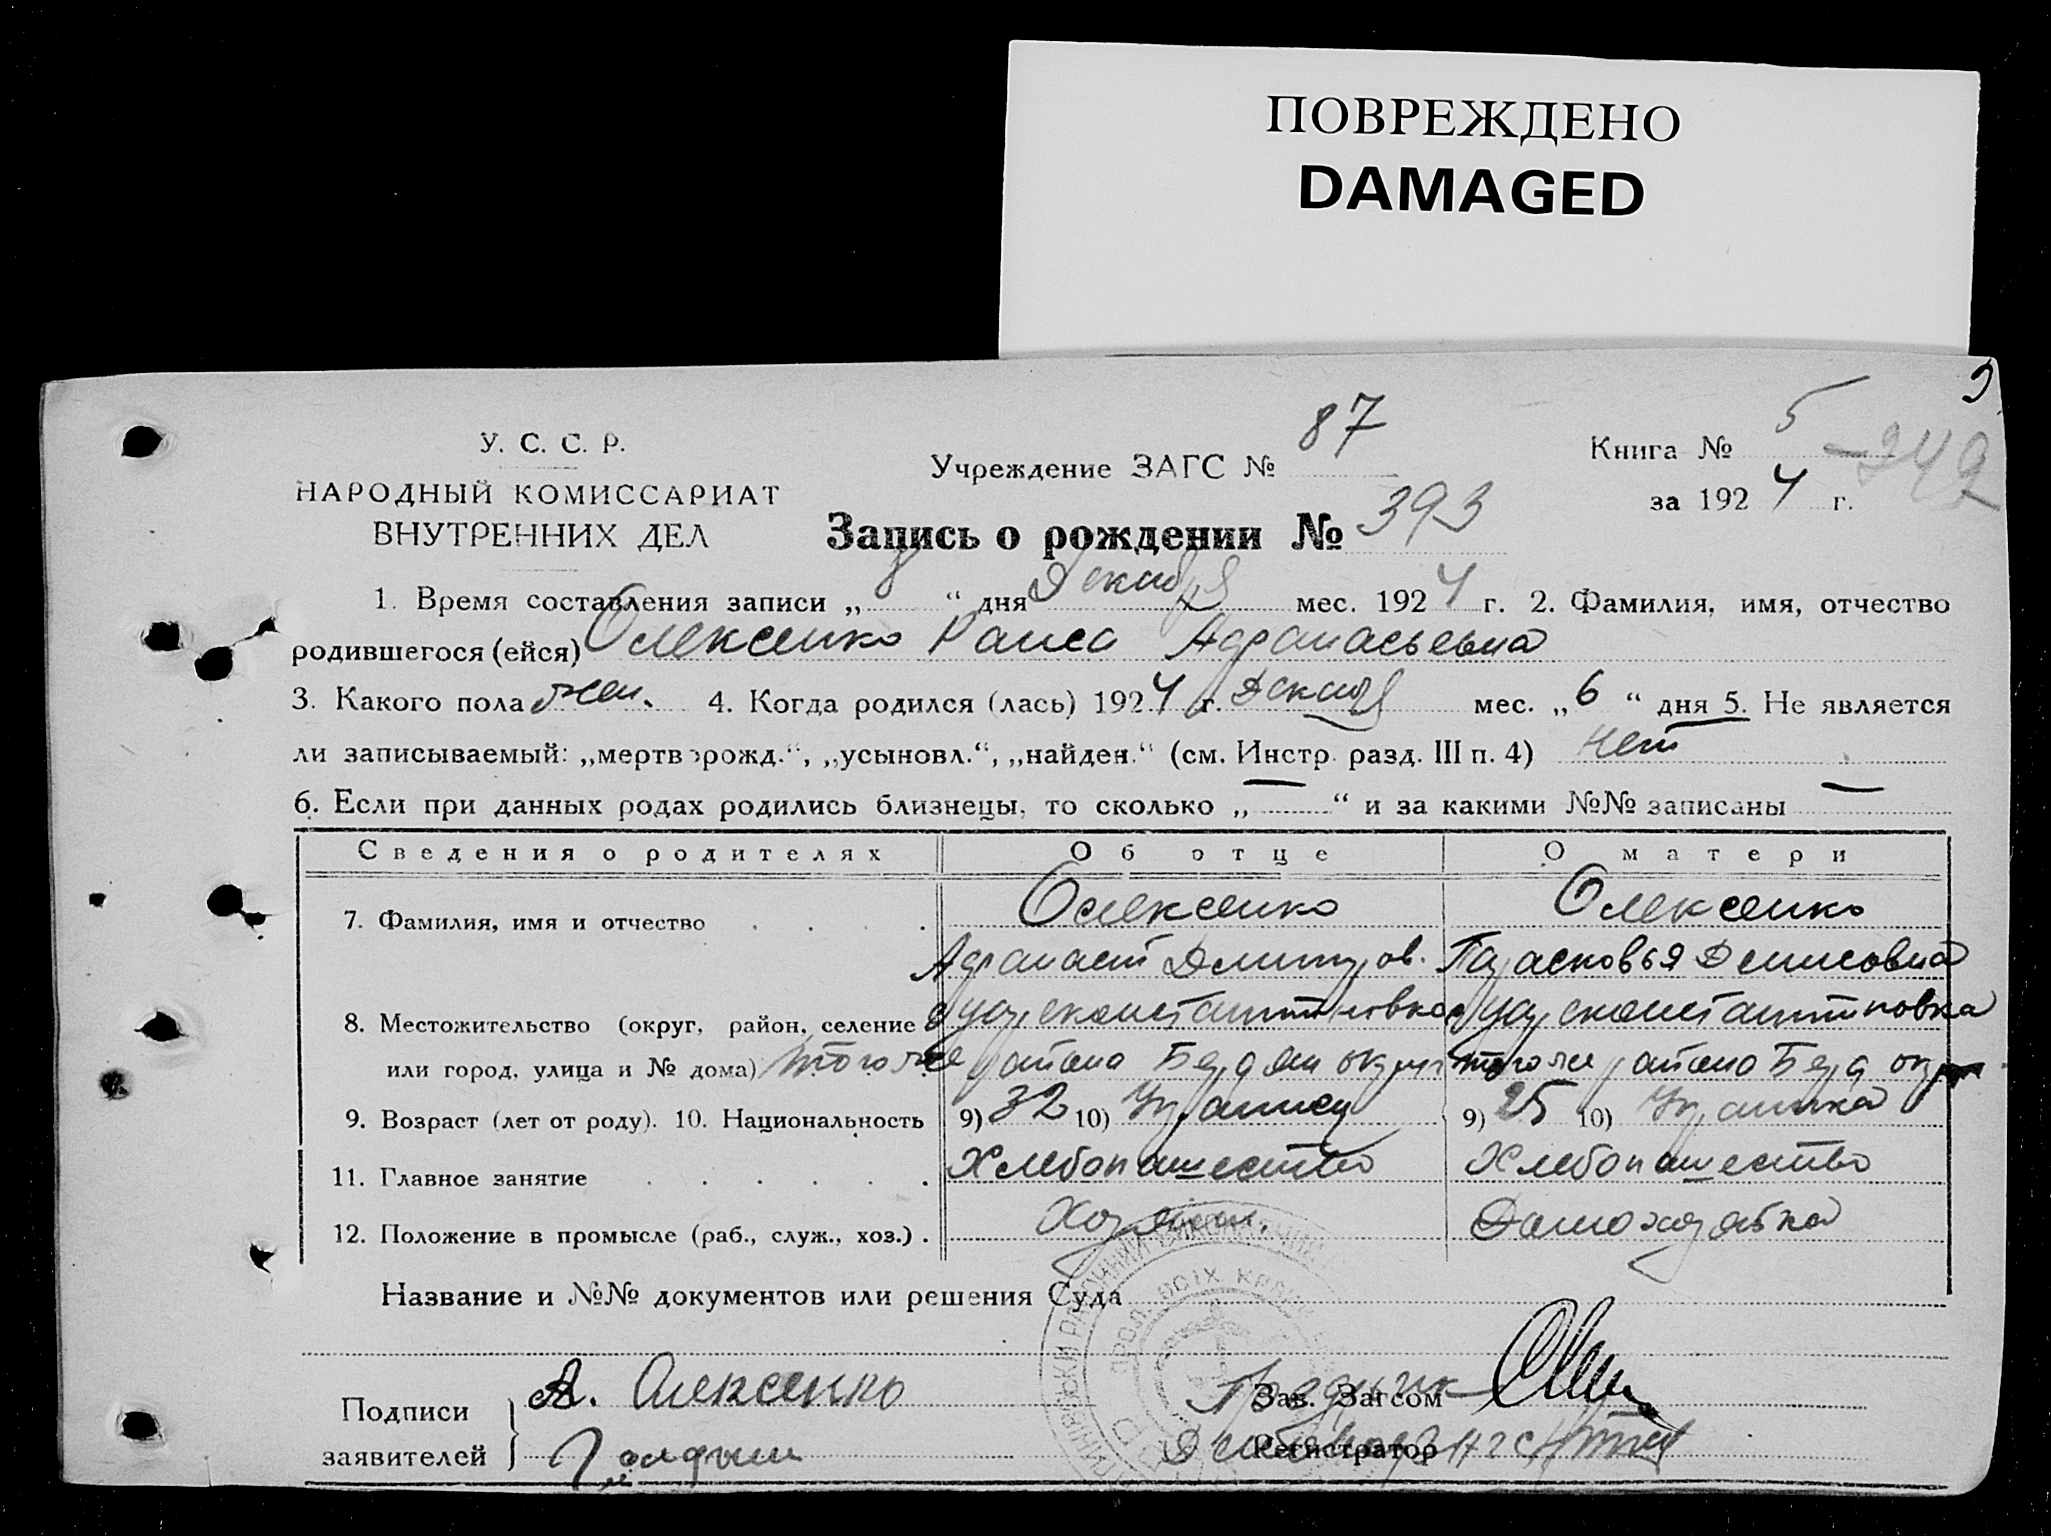 ПОВРЕЖДЕНО
DAMAGED
У. С. С. Р.
НАРОДНЫЙ КОМИССАРИАТ
ВНУТРЕННИХ ДЕЛ
Учреждение ЗАГС № 87
Книга № 5 - 249
за 1924 г.
Запись о рождении № 393
1. Время составления записи „8“ дня Декабря мес. 1924 г. 2. Фамилия, имя, отчество
родившегося (ейся) Олексенко Раиса Афанасьевна
3. Какого пола жен. 4. Когда родился (лась) 1924 г. Декабря мес. „6“ дня 5. Не является
ли записываемый: „мертворожд.“, „усыновл.“, „найден.“ (см. Инстр. разд. III п. 4) нет
6. Если при данных родах родились близнецы, то сколько „—“ и за какими №№ записаны —
Сведения о родителях Об отце О матери
7. Фамилия, имя и отчество Олексенко Олексенко
Афанасий Дмитров. Парасковья Денисовна
8. Местожительство (округ, район, селение
или город, улица и № дома) того же района Бердян округ того же района Берд округ
9. Возраст (лет от роду). 10. Национальность 9) 32 10) Украинец 9) 25 10) Украинка
11. Главное занятие Хлебопашество Хлебопашество
12. Положение в промысле (раб., служ., хоз.) Хозяин. Домохозяйка
Название и №№ документов или решения Суда
Подписи
заявителей
А. Олексенко
Зав. Загсом
Регистратор